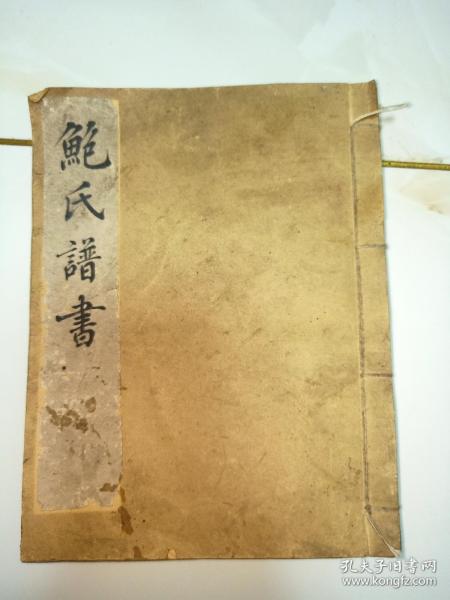 鮑氏譜書
孔夫子旧书网
www.kongfz.com